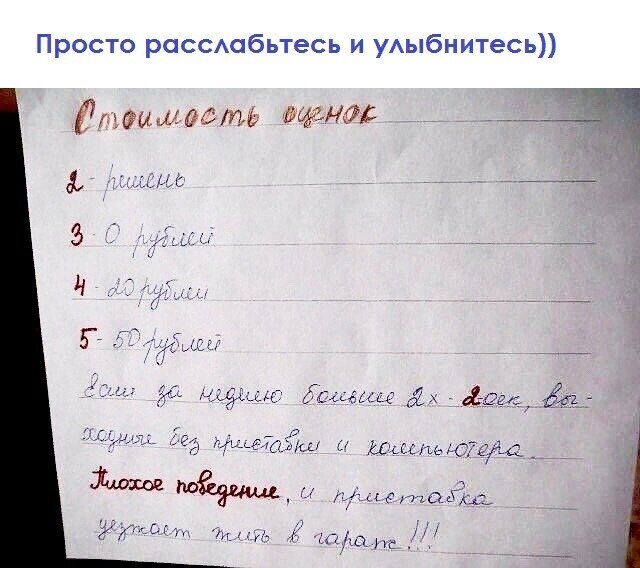 Просто расслабьтесь и улыбнитесь))
Стоимость оценок
2 - ремень
3 - 0 рублей
4 - 20 рублей
5 - 50 рублей
Если за неделю больше 2х - 2оек, вы-
ходные без приставки и компьютера.
Плохое поведение, и приставка
уезжает жить в гараж!!!